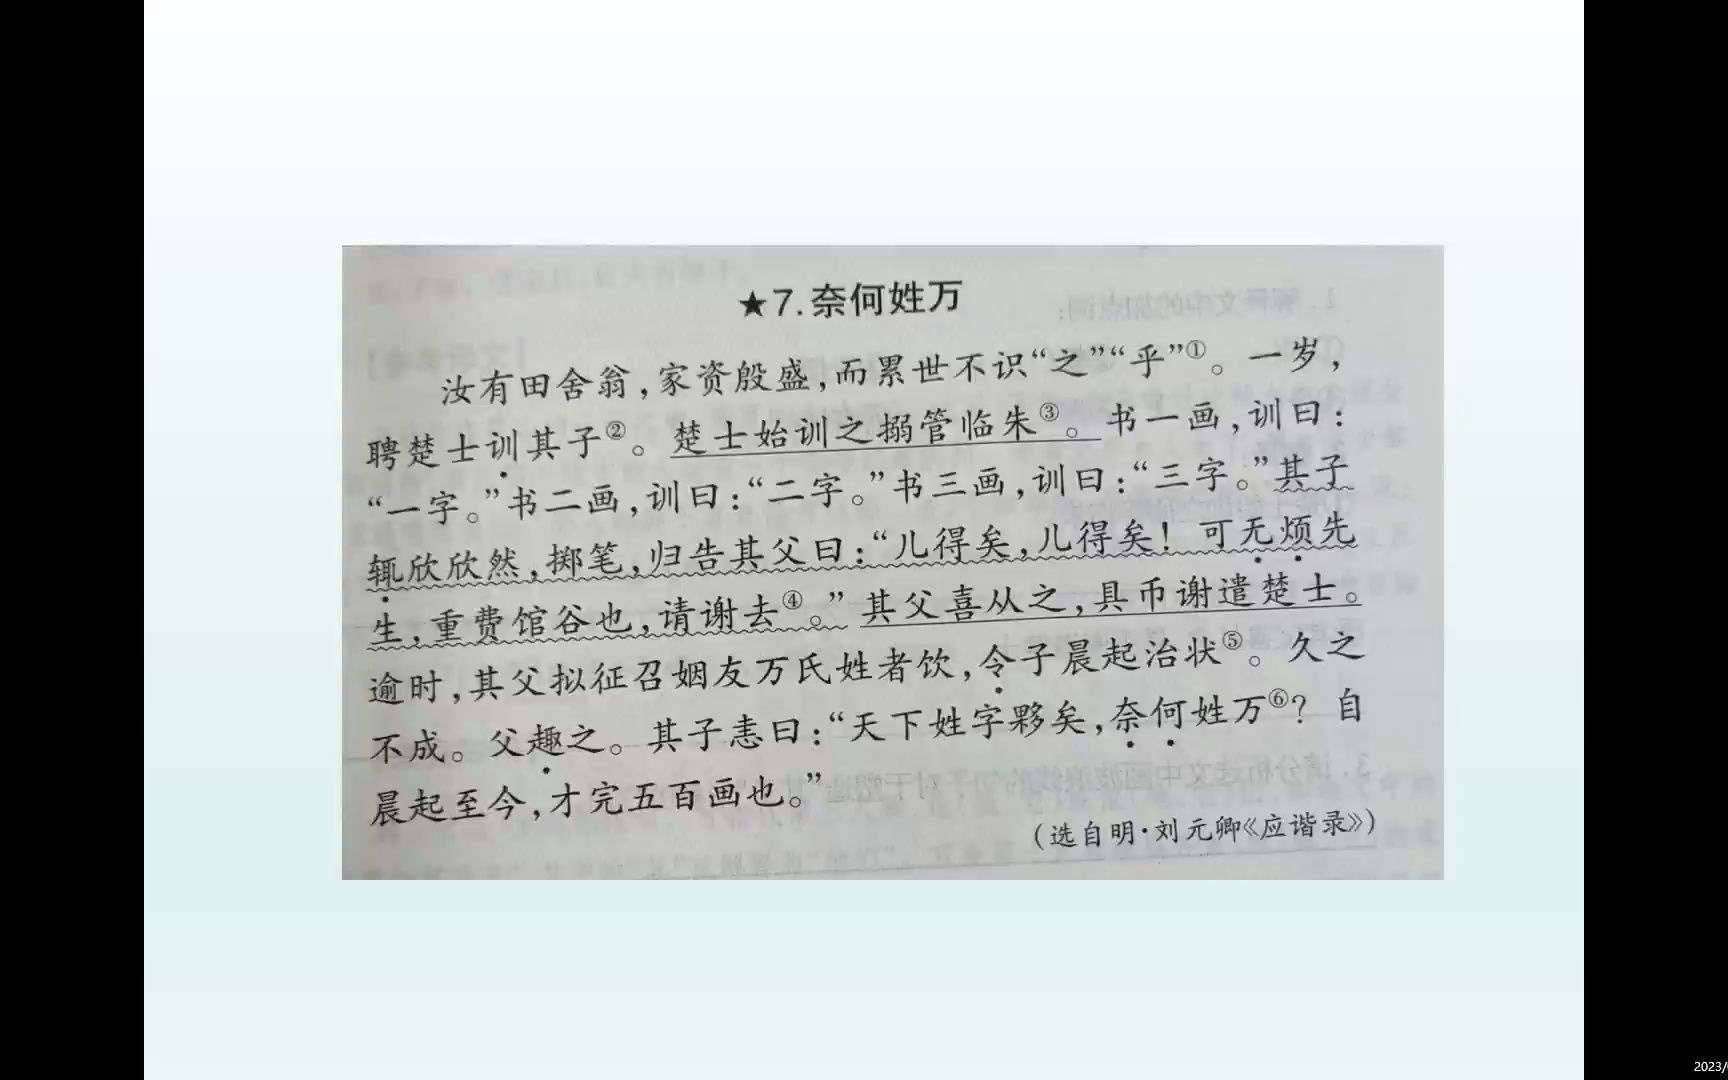 ★7.奈何姓万
汝有田舍翁,家资殷盛,而累世不识“之”“乎”①。一岁,
聘楚士训其子②。楚士始训之搦管临朱③。书一画,训曰:
“一字。”书二画,训曰:“二字。”书三画,训曰:“三字。”其子
辄欣欣然,掷笔,归告其父曰:“儿得矣,儿得矣!可无烦先
生,重费馆谷也,请谢去④。”其父喜从之,具币谢遣楚士。
逾时,其父拟征召姻友万氏姓者饮,令子晨起治状⑤。久之
不成。父趣之。其子恚曰:“天下姓字夥矣,奈何姓万⑥?自
晨起至今,才完五百画也。”
(选自明·刘元卿《应谐录》)
2023/